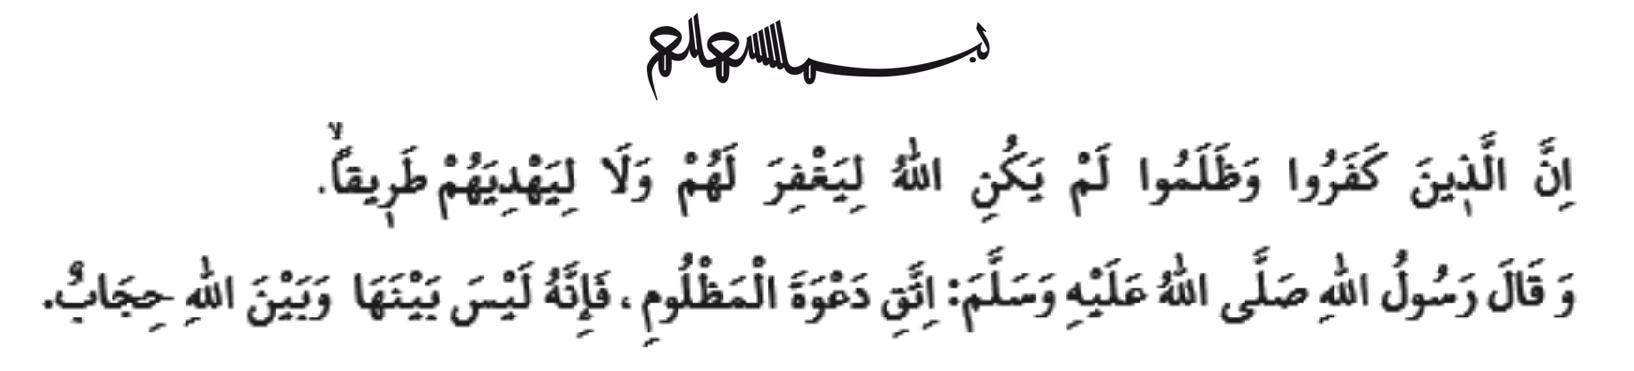 بسم الله الرحمن الرحيم
اِنَّ الَّذ۪ينَ كَفَرُوا وَظَلَمُوا لَمْ يَكُنِ اللّٰهُ لِيَغْفِرَ لَهُمْ وَلَا لِيَهْدِيَهُمْ طَر۪يقاًۙ.
وَ قَالَ رَسُولُ اللّٰهِ صَلَّى اللّٰهُ عَلَيْهِ وَسَلَّمَ: اِتَّقِ دَعْوَةَ الْمَظْلُومِ ، فَإِنَّهُ لَيْسَ بَيْنَهَا وَبَيْنَ اللّٰهِ حِجَابٌ.